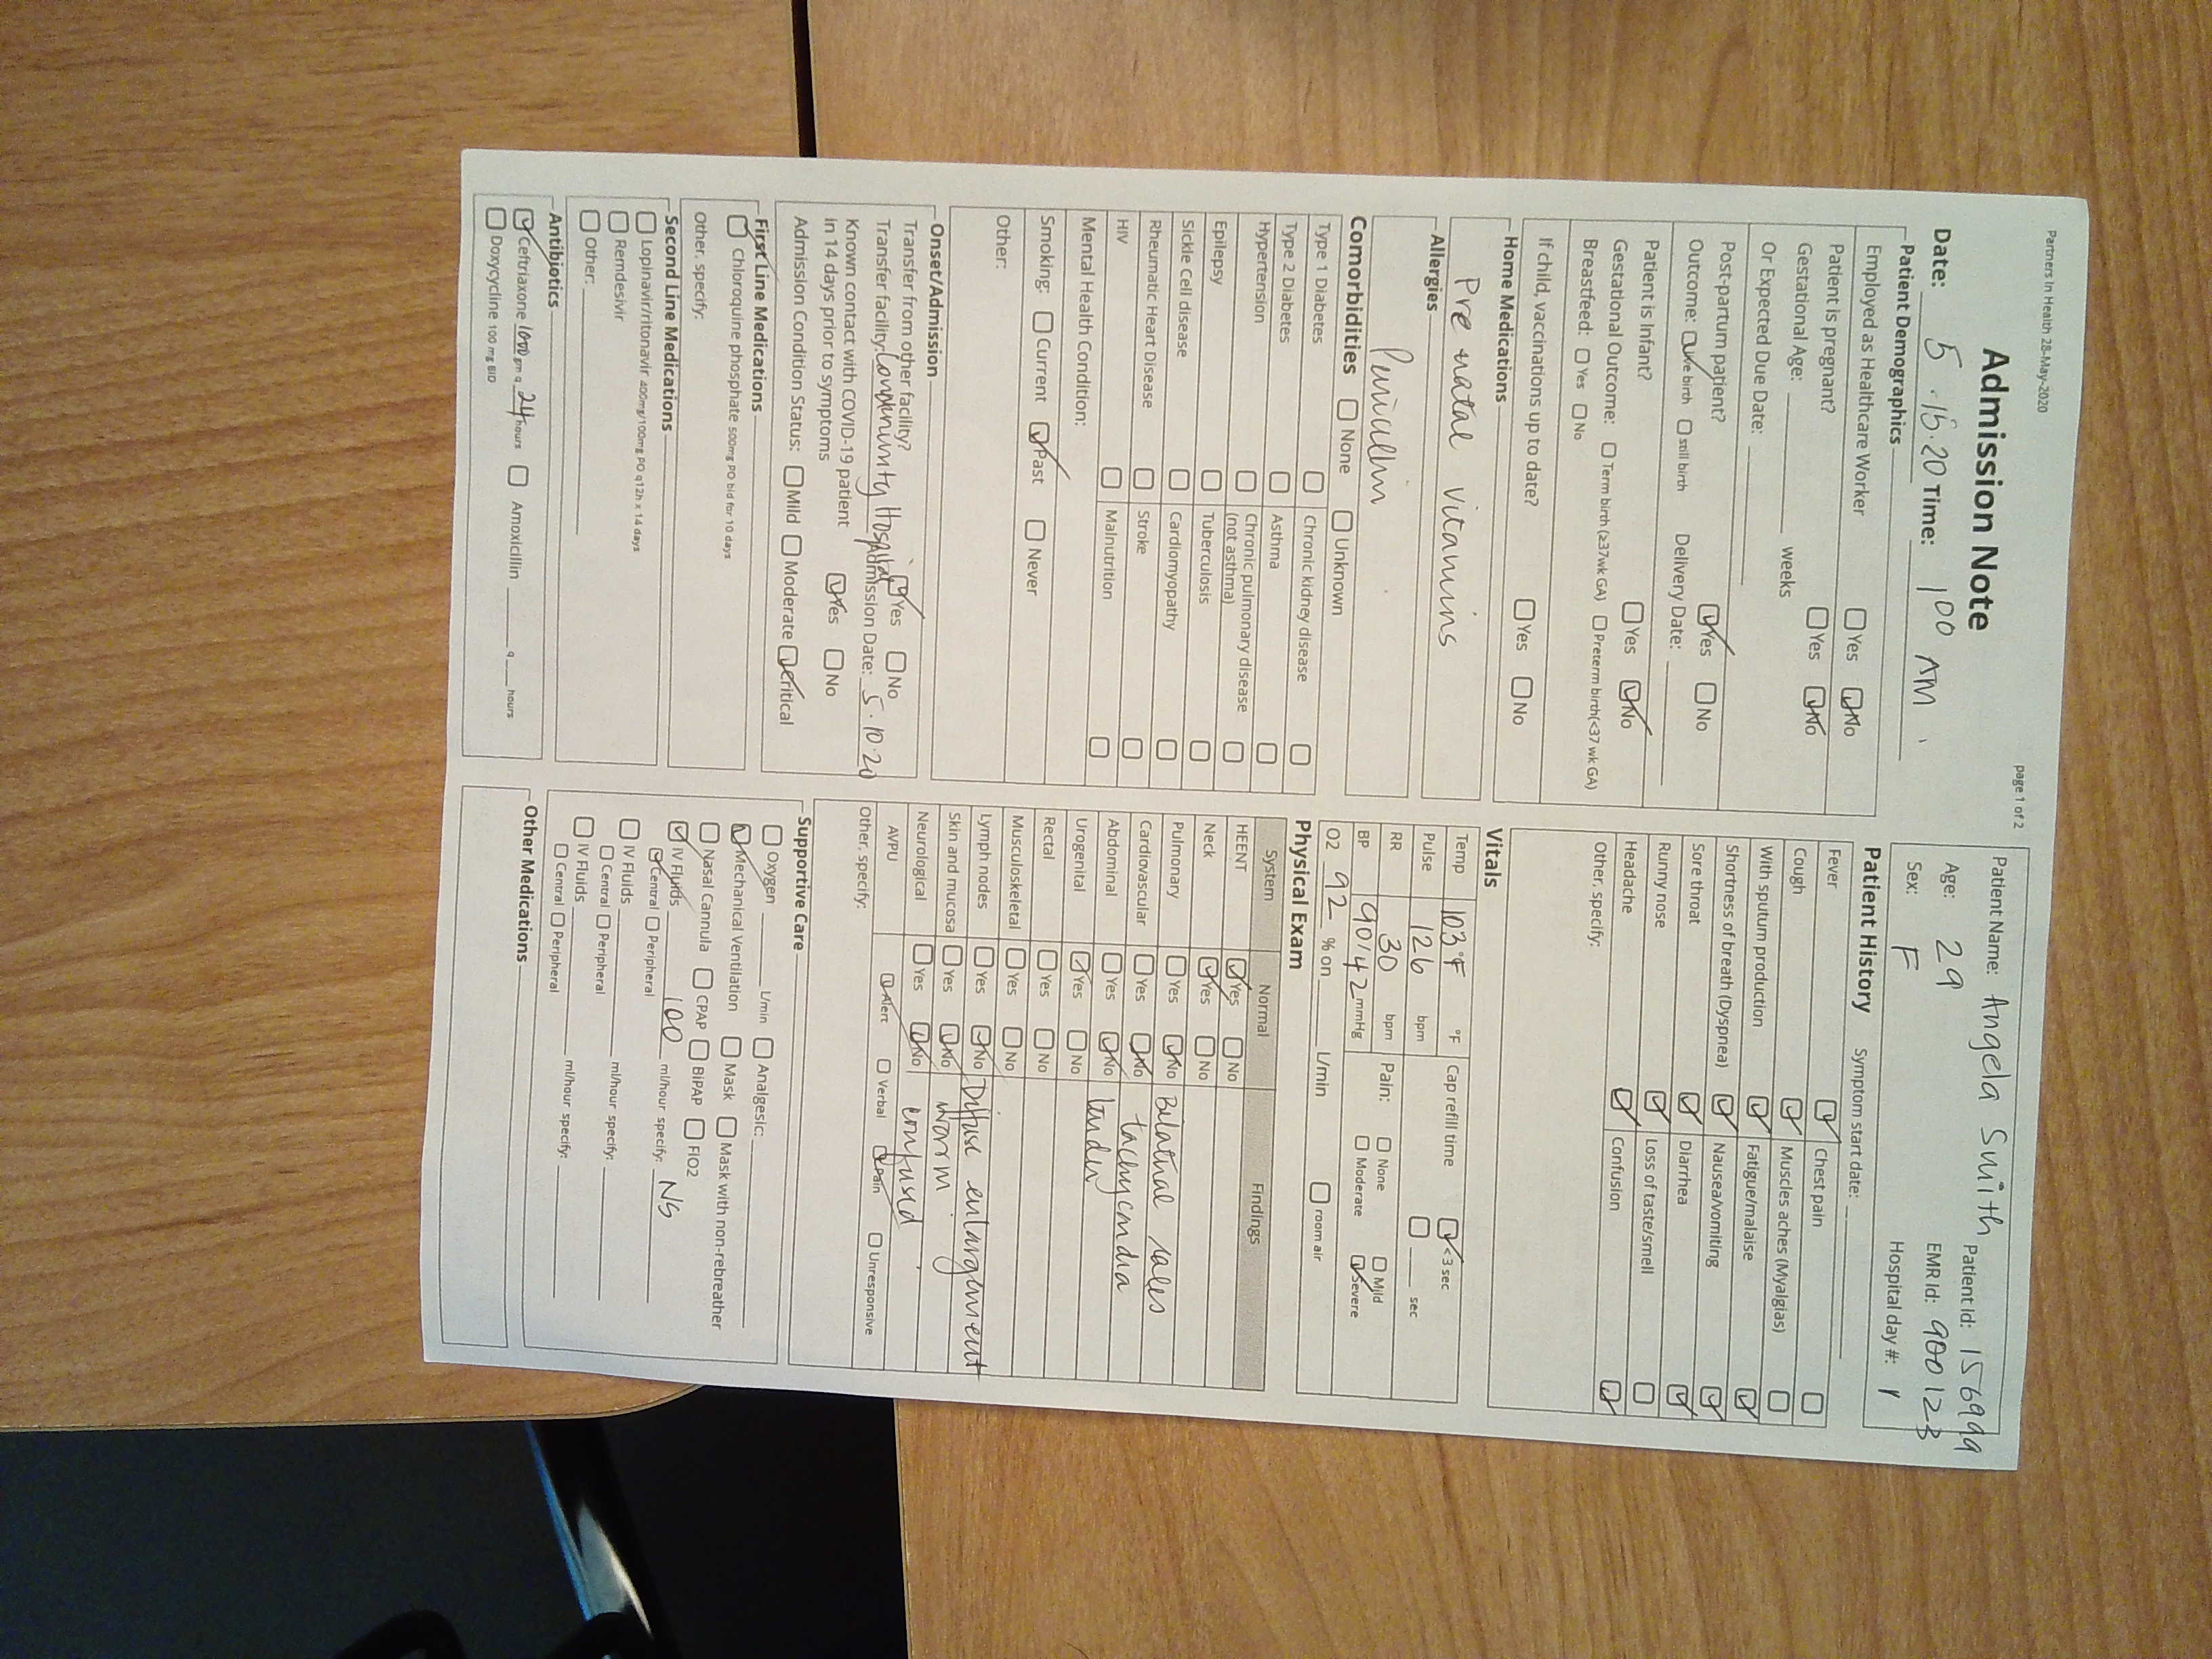 Partners In Health 28-May-2020
page 1 of 2
Admission Note
Date: 5.15.20 Time: 1 00 AM
Patient Name: Angela Smith Patient Id: 156999
Age: 29 EMR Id: 900123
Sex: F Hospital day #: 1
Patient Demographics
Employed as Healthcare Worker Yes No
Patient is pregnant? Yes No
Gestational Age: weeks
Or Expected Due Date:
Post-partum patient? Yes No
Outcome: Live birth still birth Delivery Date:
Patient is Infant? Yes No
Gestational Outcome: Term birth (≥37wk GA) Preterm birth(<37 wk GA)
Breastfeed: Yes No
If child, vaccinations up to date? Yes No
Home Medications
Pre natal vitamins
Allergies
Penicillin
Comorbidities None Unknown
Type 1 Diabetes Chronic kidney disease
Type 2 Diabetes Asthma
Hypertension Chronic pulmonary disease (not asthma)
Epilepsy Tuberculosis
Sickle Cell disease Cardiomyopathy
Rheumatic Heart Disease Stroke
HIV Malnutrition
Mental Health Condition:
Smoking: Current Past Never
Other:
Onset/Admission
Transfer from other facility? Yes No
Transfer facility: Community Hospital Admission Date: 5.10.20
Known contact with COVID-19 patient
in 14 days prior to symptoms Yes No
Admission Condition Status: Mild Moderate Critical
First Line Medications
Chloroquine phosphate 500mg PO bid for 10 days
Other, specify:
Second Line Medications
Lopinavir/ritonavir 400mg/100mg PO q12h x 14 days
Remdesivir
Other:
Antibiotics
Ceftriaxone 1000 gm q 24 hours Amoxicillin q hours
Doxycycline 100 mg BID
Patient History Symptom start date:
Fever Chest pain
Cough Muscles aches (Myalgias)
With sputum production Fatigue/malaise
Shortness of breath (Dyspnea) Nausea/vomiting
Sore throat Diarrhea
Runny nose Loss of taste/smell
Headache Confusion
Other, specify:
Vitals
Temp 103°F °F Cap refill time <3 sec
Pulse 126 bpm sec
RR 30 bpm Pain: None Mild
BP 90/42 mmHg Moderate Severe
O2 92 % on L/min room air
Physical Exam
System Normal Findings
HEENT Yes No
Neck Yes No
Pulmonary Yes No Bilatural rales
Cardiovascular Yes No tachycardia
Abdominal Yes No tender
Urogenital Yes No
Rectal Yes No
Musculoskeletal Yes No
Lymph nodes Yes No Diffuse enlargement
Skin and mucosa Yes No warm
Neurological Yes No confused
AVPU Alert Verbal Pain Unresponsive
Other, specify:
Supportive Care
Oxygen L/min Analgesic:
Mechanical Ventilation Mask Mask with non-rebreather
Nasal Cannula CPAP BiPAP FIO2
IV Fluids 100 ml/hour specify: NS
Central Peripheral
IV Fluids ml/hour specify:
Central Peripheral
IV Fluids ml/hour specify:
Central Peripheral
Other Medications